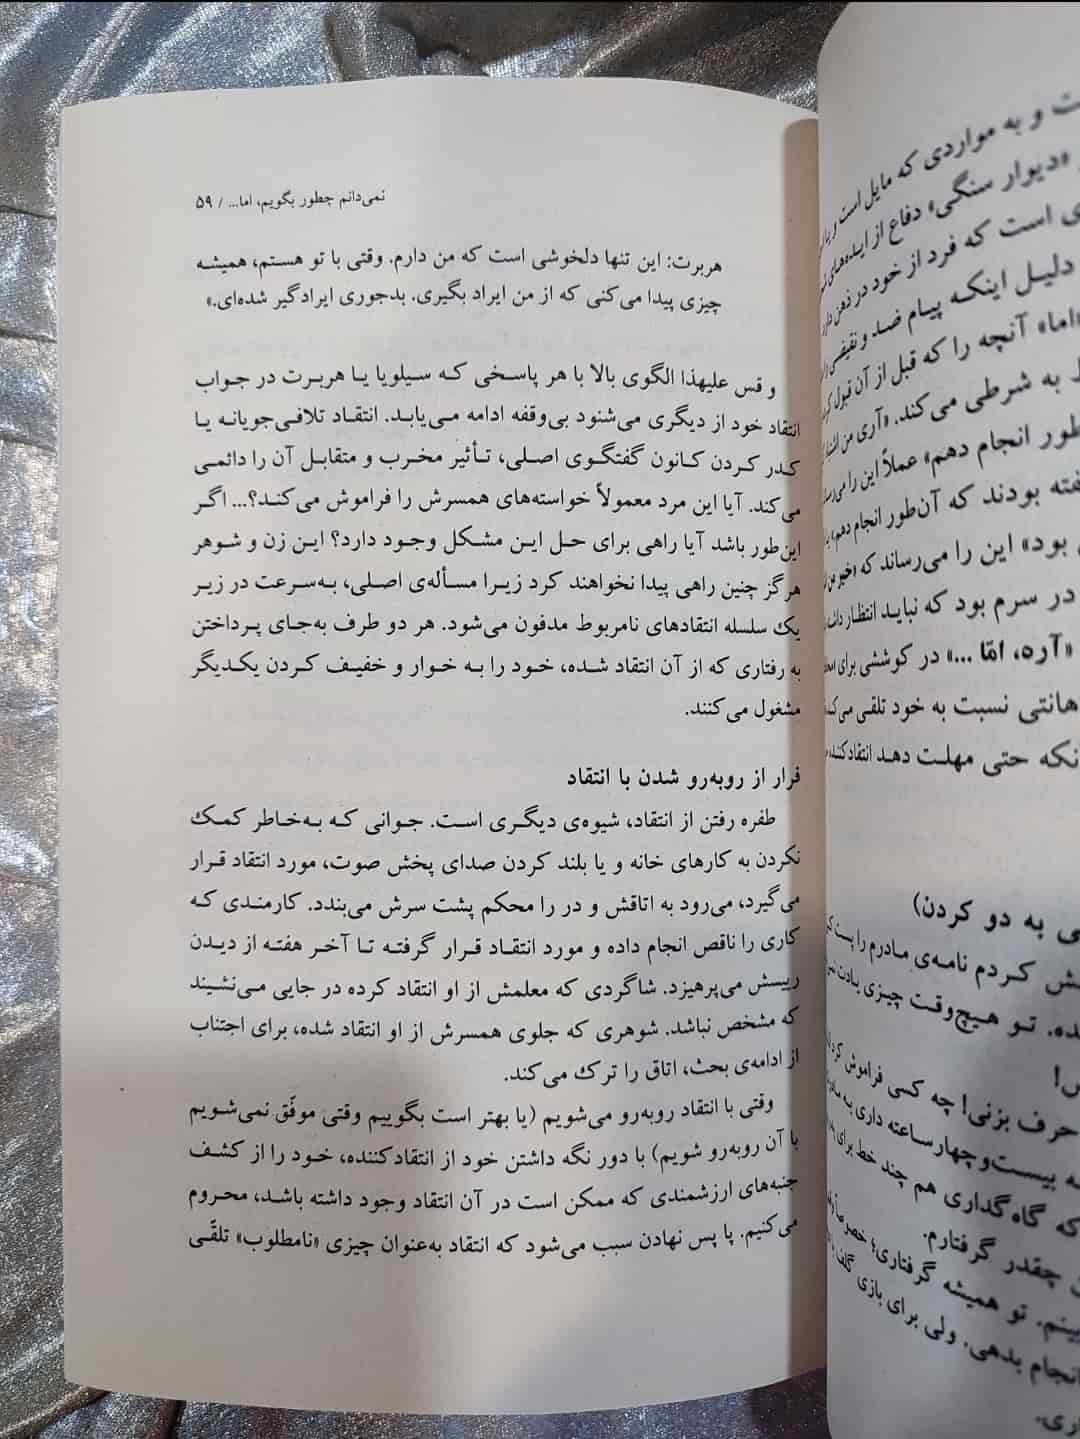 نمی‌دانم چطور بگویم، اما... / ۵۹
هربرت: این تنها دلخوشی است که من دارم. وقتی با تو هستم، همیشه
چیزی پیدا می‌کنی که از من ایراد بگیری. بدجوری ایرادگیر شده‌ای.»
و قس علیهذا الگوی بالا با هر پاسخی که سیلویا یا هربرت در جواب
انتقاد خود از دیگری می‌شنود بی‌وقفه ادامه می‌یابد. انتقاد تلافی‌جویانه یا
کدر کردن کانون گفتگوی اصلی، تأثیر مخرب و متقابل آن را دائمی
می‌کند. آیا این مرد معمولاً خواسته‌های همسرش را فراموش می‌کند؟... اگر
این‌طور باشد آیا راهی برای حل این مشکل وجود دارد؟ این زن و شوهر
هرگز چنین راهی پیدا نخواهند کرد زیرا مسأله‌ی اصلی، به‌سرعت در زیر
یک سلسله انتقادهای نامربوط مدفون می‌شود. هر دو طرف به‌جای پرداختن
به رفتاری که از آن انتقاد شده، خود را به خوار و خفیف کردن یکدیگر
مشغول می‌کنند.
فرار از روبه‌رو شدن با انتقاد
طفره رفتن از انتقاد، شیوه‌ی دیگری است. جوانی که به‌خاطر کمک
نکردن به کارهای خانه و یا بلند کردن صدای پخش صوت، مورد انتقاد قرار
می‌گیرد، می‌رود به اتاقش و در را محکم پشت سرش می‌بندد. کارمندی که
کاری را ناقص انجام داده و مورد انتقاد قرار گرفته تا آخر هفته از دیدن
رییسش می‌پرهیزد. شاگردی که معلمش از او انتقاد کرده در جایی می‌نشیند
که مشخص نباشد. شوهری که جلوی همسرش از او انتقاد شده، برای اجتناب
از ادامه‌ی بحث، اتاق را ترک می‌کند.
وقتی با انتقاد روبه‌رو می‌شویم (یا بهتر است بگوییم وقتی موفّق نمی‌شویم
با آن روبه‌رو شویم) با دور نگه داشتن خود از انتقادکننده، خود را از کشف
جنبه‌های ارزشمندی که ممکن است در آن انتقاد وجود داشته باشد، محروم
می‌کنیم. پا پس نهادن سبب می‌شود که انتقاد به‌عنوان چیزی «نامطلوب» تلقّی
و به مواردی که مایل است و
«دیوار سنگی» دفاع از ایده‌های
است که فرد از خود در ذهن دارد
دلیل اینکه پیام ضد و نقیضی را
«اما» آنچه را که قبل از آن قبول
به شرطی می‌کند. «آری من
طور انجام دهم» عملاً این را
بودند که آن‌طور انجام دهم»
بود» این را می‌رساند که
در سرم بود که نباید انتظار
«آره، امّا ...» در کوششی برای
نسبت به خود تلقی
حتی مهلت دهد انتقادکننده
به دو کردن)
کردم نامه‌ی مادرم را پست
تو هیچ‌وقت چیزی یادت
حرف بزنی! چه کسی فراموش
بیست‌وچهارساعته داری به
که گاه‌گداری هم چند خط برای
چقدر گرفتارم.
تو همیشه گرفتاری؛
ولی برای بازی گلف
انجام بدهی.